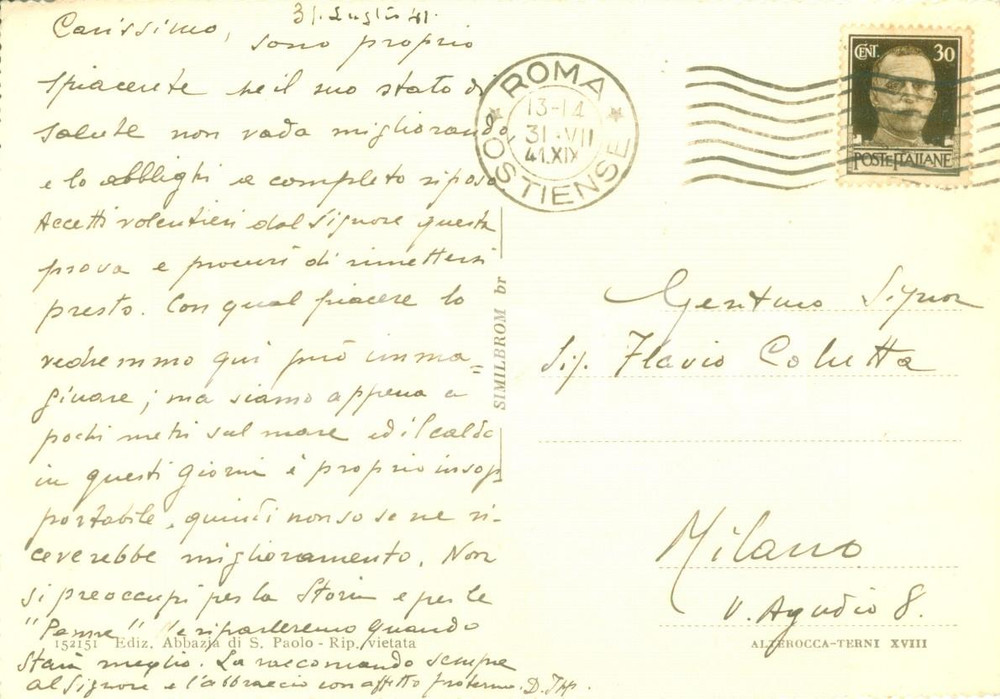 31. Luglio 41.
Carissimo,
sono proprio
spiacente che il suo stato di
salute non vada migliorando
e lo obblighi a completo riposo
Accetti volentieri dal Signore questa
prova e procuri di rimettersi
presto. Con qual piacere lo
vedremmo qui può imma=
ginare; ma siamo appena a
pochi metri sul mare ed il caldo
in questi giorni è proprio insop
portabile, quindi non so se ne ri-
ceverebbe miglioramento. Non
si preoccupi per la Storia e per le
" e riparleremo quando
starà meglio. La raccomando sempre
al Signore e l'abbraccio con affetto fraterno. D.
152151 Ediz. Abbazia di S. Paolo - Rip. vietata
SIMILBROM br
ROMA
13-14
31·VII
41.XIX
OSTIENSE
CENT. 30
POSTE ITALIANE
Gentmo Signor
Sig. Flavio Colutta
Milano
V. Agudio 8.
ALTEROCCA-TERNI XVIII